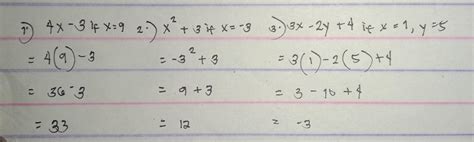 1.) 4x - 3 if x = 9 2.) x² + 3 if x = -3 3.) 3x - 2y + 4 if x = 1, y = 5
= 4(9) - 3 = -3² + 3 = 3(1) - 2(5) + 4
= 36 - 3 = 9 + 3 = 3 - 10 + 4
= 33 = 12 = -3